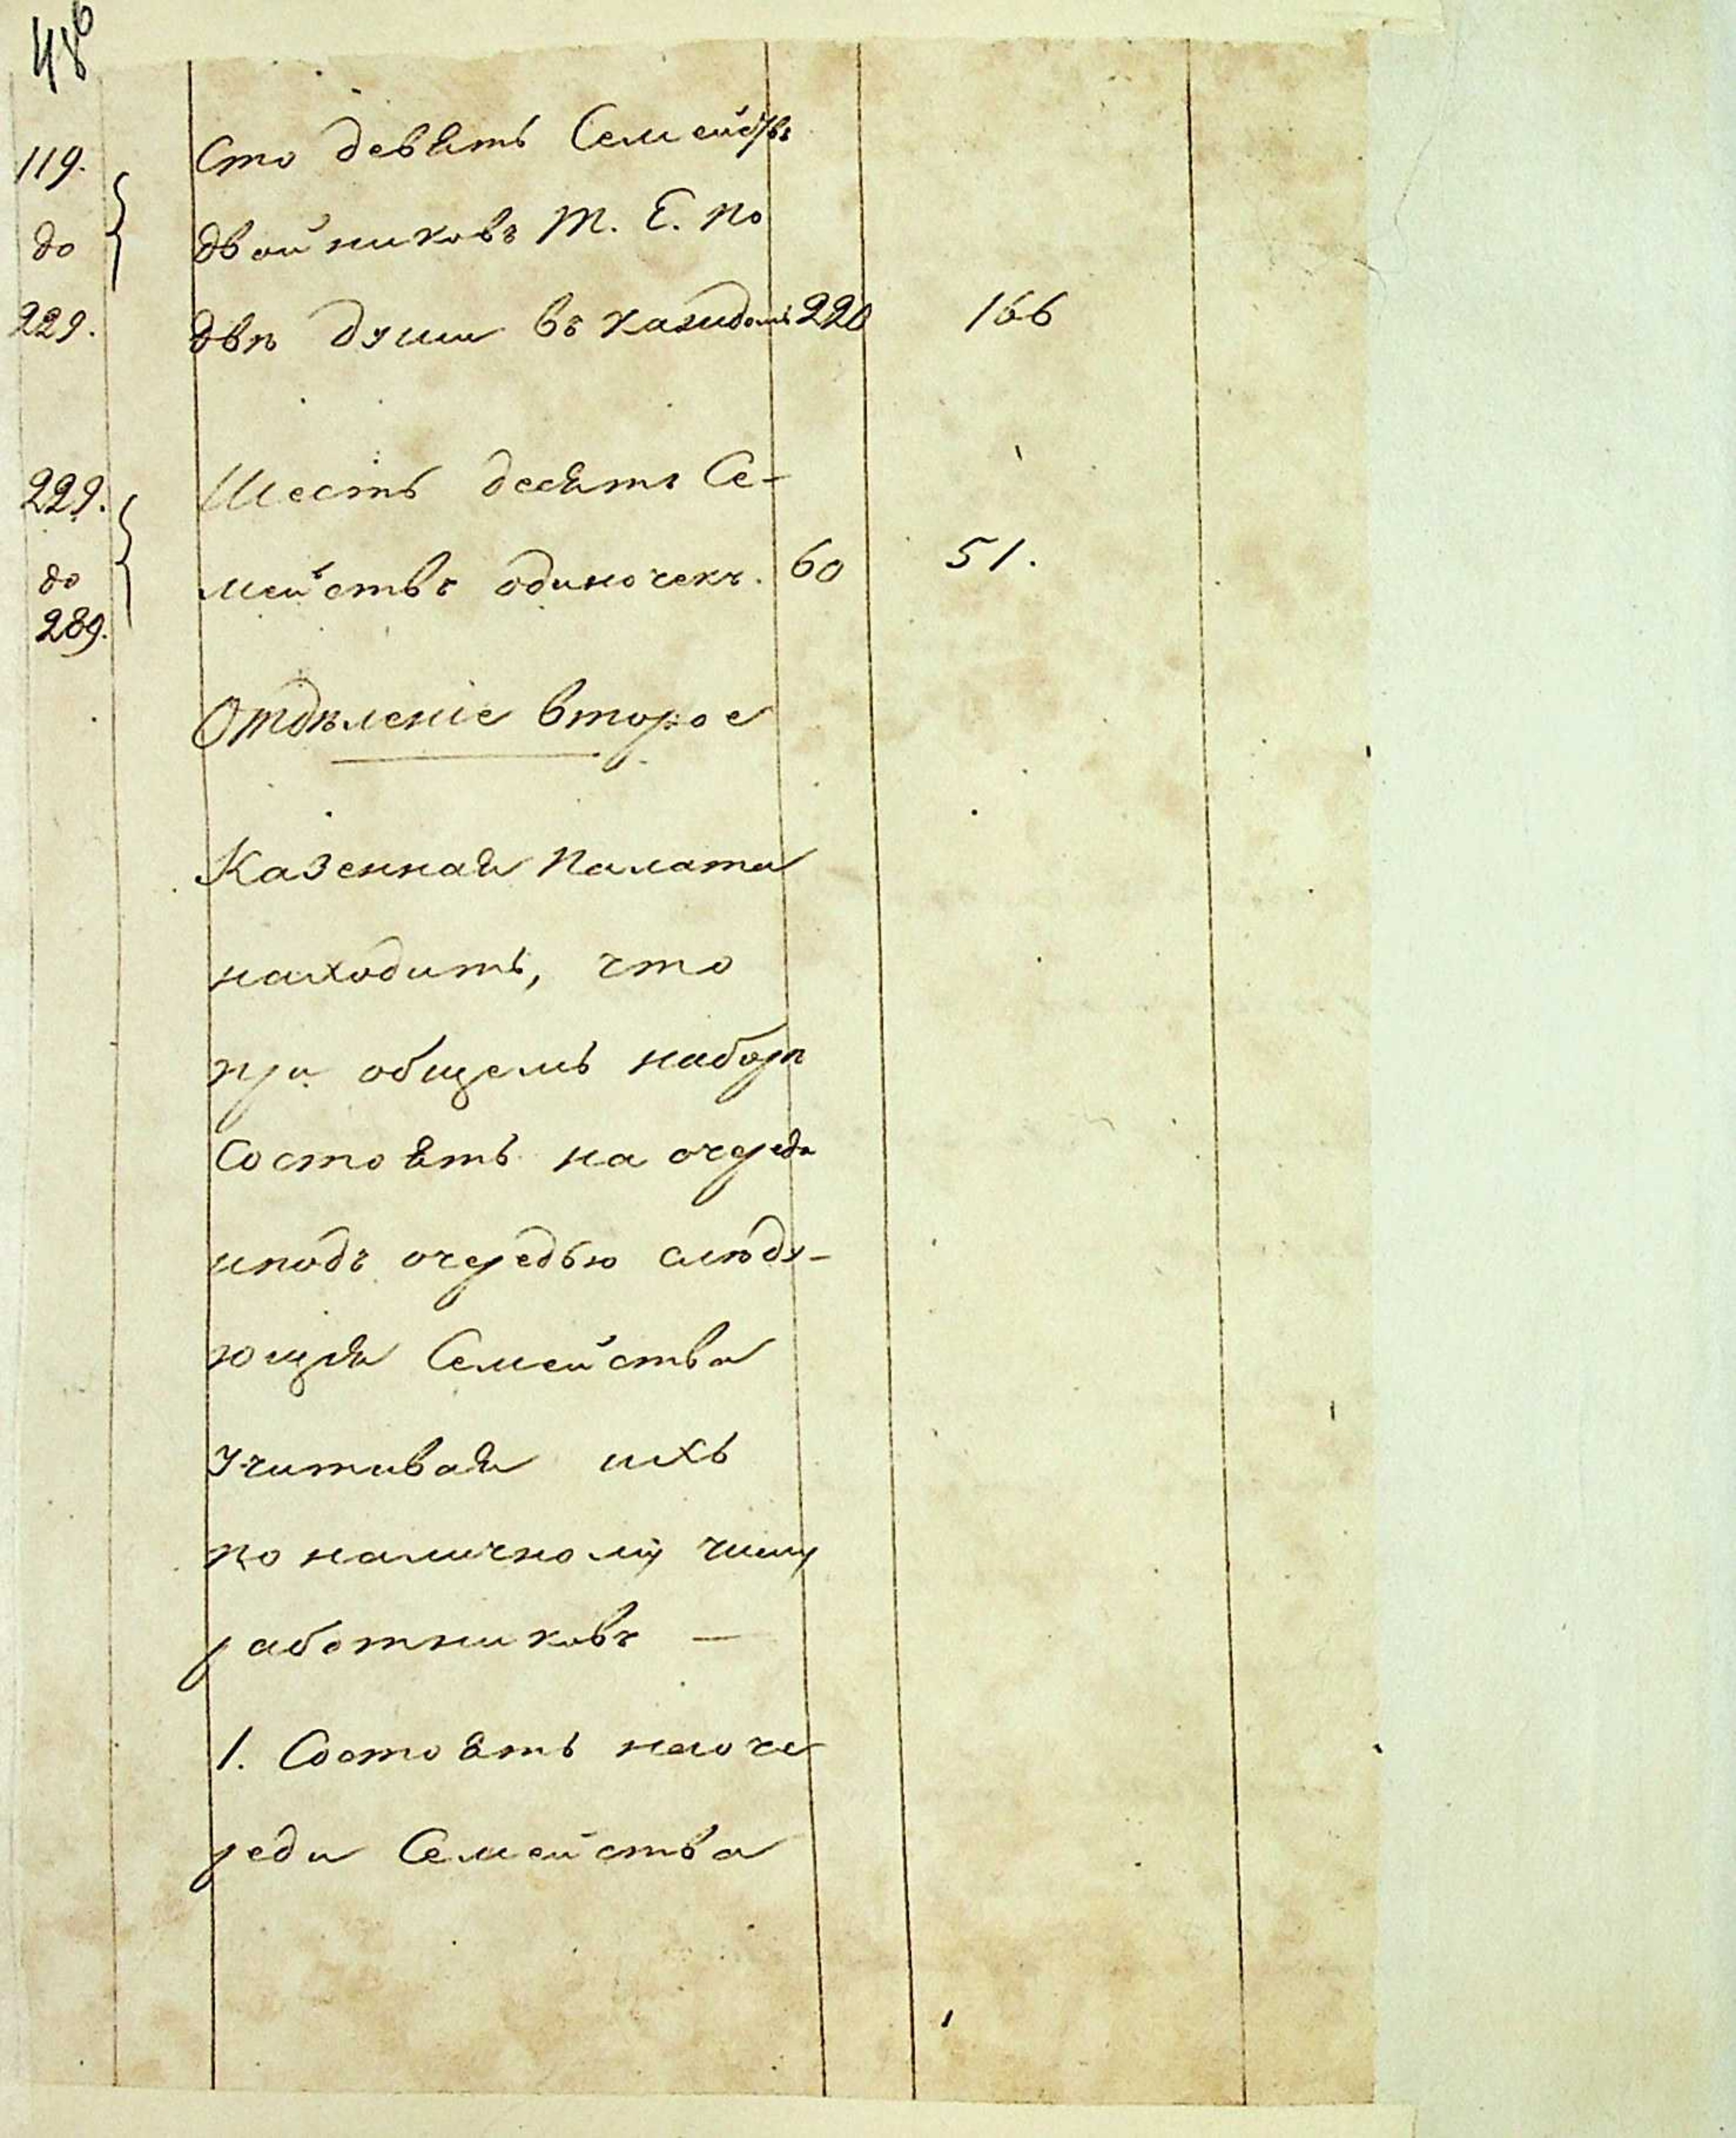 486
119. Сто девять Семействъ
до двойниковъ т. е. по
229. двѣ души въ каждомъ 220 166
229. Шесть десятъ Се-
до мействъ одиночекъ. 60 51.
289.
Отдѣленіе второе
Казенная Палата
находитъ, что
при общемъ наборѣ
Состоятъ на очереди
иподъ очередью слѣду-
ющія Семейства
учитывая ихъ
по наличному числу
работниковъ —
1. Состоятъ наоче
реди Семейства